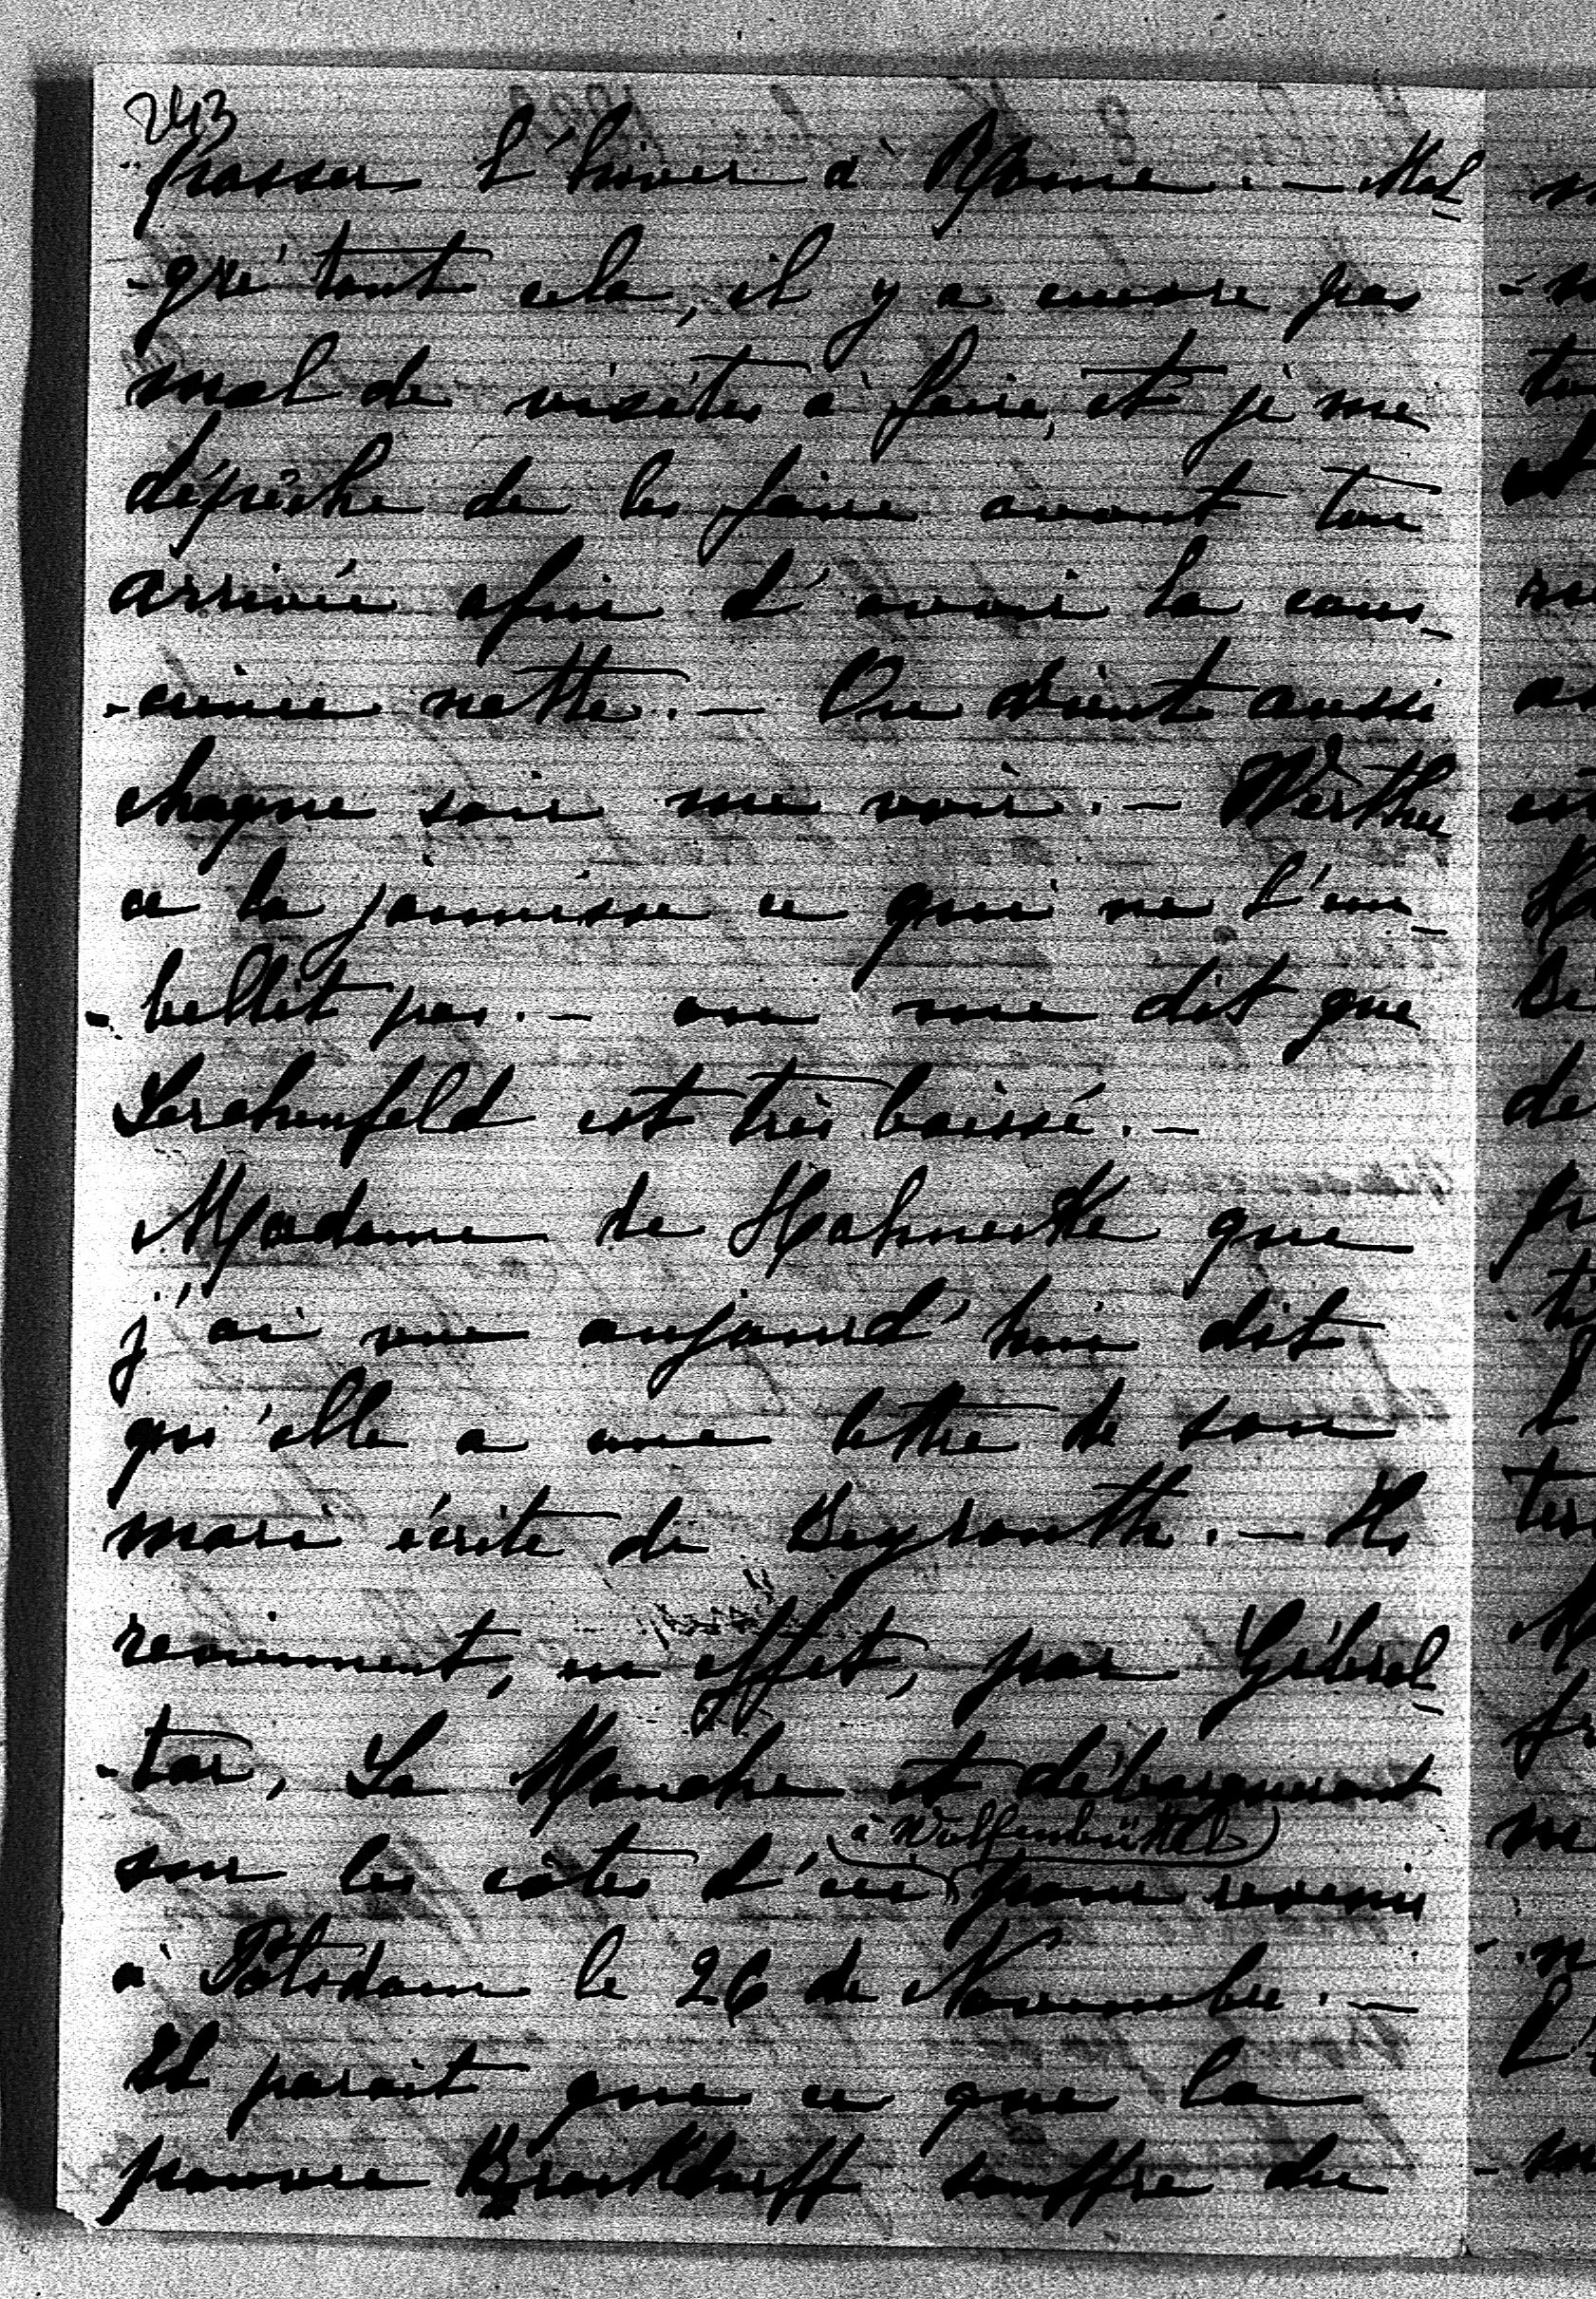 243
passer l'hiver à Rome. — Mal
-gré tout cela, il y a encore pas
mal de visites à faire, et je me
dépêche de les faire avant ton
arrivée afin d'avoir la cons_
-cience nette. — On vient aussi
chaque soir me voir. — Werther
a la jaunisse ce qui ne l'em_
-bellit pas. — on me dit que
Lerchenfeld est très baissé. —
Madame de Hahneke que
j'ai vue aujourd'hui dit
qu'elle a une lettre de son
mari écrite de Beyrouth. — Ils
reviennent, en effet, par Gibral_
-tar, La Manche et débarqueront
à Wolfenbüttel
sur les côtes d'ici, pour revenir
à Potsdam le 26 de Novembre. —
Il parait que ce que la
pauvre Brockdorff souffre du